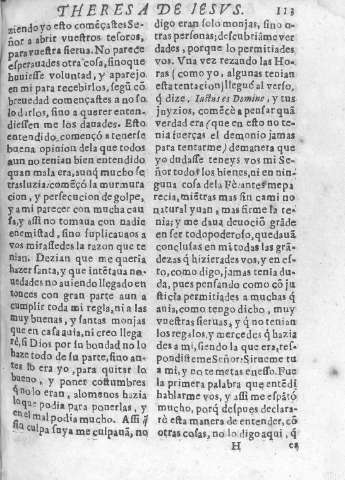 THERESA DE IESVS. 113
ziendo yo esto começastes Se
ñor a abrir vuestros tesoros,
para vuestra sierua. No parece
esperauades otra cosa, sino que
houiesse voluntad, y aparejo
en mi para recebirlos, segũ cõ
breuedad començastes a no so
lo darlos, sino a querer enten-
diessen me los dauades. Esto
entendido, començò a tenerse
buena opinion dela que todos
aun no tenian bien entendido
quan mala era, aunq̃ mucho se
trasluzia: comẽçò la murmura
cion, y persecucion de golpe,
y a mi parecer con mucha cau
sa, y assi no tomaua con nadie
enemistad, sino suplicauaos a
vos mirassedes la razon que te
nian. Dezian que me queria
hazer santa, y que intẽtaua no-
uedades no auiendo llegado en
tonces con gran parte aun a
cumplir toda mi regla, ni a las
muy buenas, y santas monjas
que en casa auia, ni creo llega
rè, si Dios por su bondad no lo
haze todo de su parte, sino an-
tes lo era yo, para quitar lo
bueno, y poner costumbres
q̃ no lo eran, alomenos hazia
lo que podia para ponerlas, y
en el mal podia mucho. Assi q̃
sin culpa suya me culpauã, no
digo eran solo monjas, sino o-
tras personas; descubriãme ver
dades, porque lo permitiades
vos. Vna vez rezando las Ho-
ras (como yo, algunas tenian
esta tentacion) lleguè al verso,
q̃ dize. Iustus es Domine, y tus
juyzios, comẽcè a pensar quã
verdad era (que en esto no te-
nia fuerças el demonio jamas
para tentarme) demanera que
yo dudasse teneys vos mi Se-
ñor todos los bienes, ni en nin-
guna cosa de la Fè: antes me pa
recia, mientras mas sin cami no
natural yuan, mas firme la te-
nia; y me daua deuociõ grãde
en ser todopoderoso, quedauã
conclusas en mi todas las grã-
dezas q̃ hizierades vos, y en es-
to, como digo, jamas tenia du-
da, pues pensando como cõ ju
sticia permitiades a muchas q̃
auia, como tengo dicho, muy
vuestras sieruas, y q̃ no tenian
los regalos, y mercedes q̃ hazia
des a mi, siendo la que era, res-
pondisteme Señor: Sirueme tu
a mi, y no te metas en esso. Fue
la primera palabra que entẽdi
hablarme vos, y assi me espãtò
mucho, porq̃ despues declara-
rè esta manera de entender, cõ
otras cosas, no lo digo aqui, q̃
H